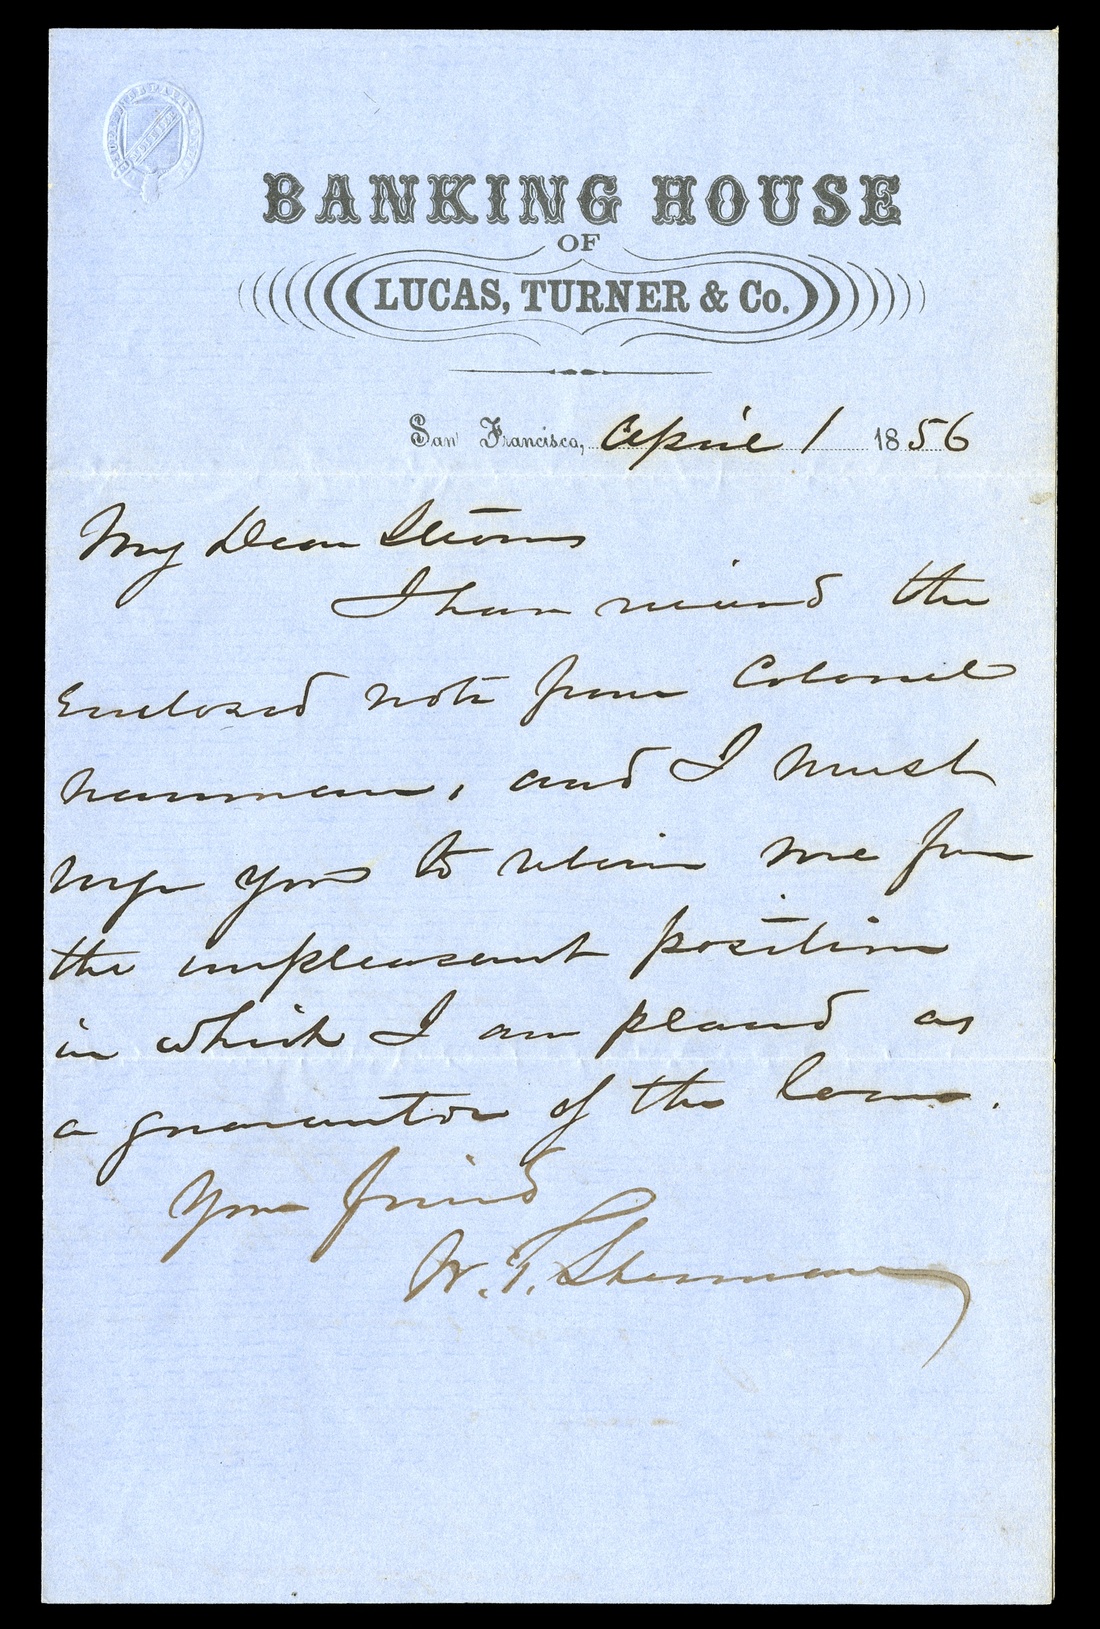 BANKING HOUSE
OF
LUCAS, TURNER & Co.
San Francisco, April 1 1856
My Dear Sterns
I have received the
Enclosed note from Colonel
, and I must
urge you to relieve me from
the unpleasant position
in which I am placed as
a guarantor of the loan.
Your friend
W. T. Sherman